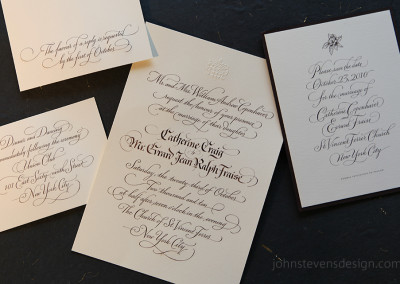 The favour of a reply is requested
by the first of October
Dinner and Dancing
immediately following the wedding
Union Club
101 East Sixty-ninth Street
New York City
Mr. and Mrs. William
request the honour of your presence
at the marriage of their daughter
Catharine Craig
to
Mr. Grant Jean Ralph
Saturday, the twenty-third of October
Two thousand and ten
at half after seven o'clock in the evening
The Church of St. Vincent Ferrer
New York City
Please save the date
October 23, 2010
for the marriage of
Catharine
to
Grant
St. Vincent Ferrer Church
New York City
johnstevensdesign.com